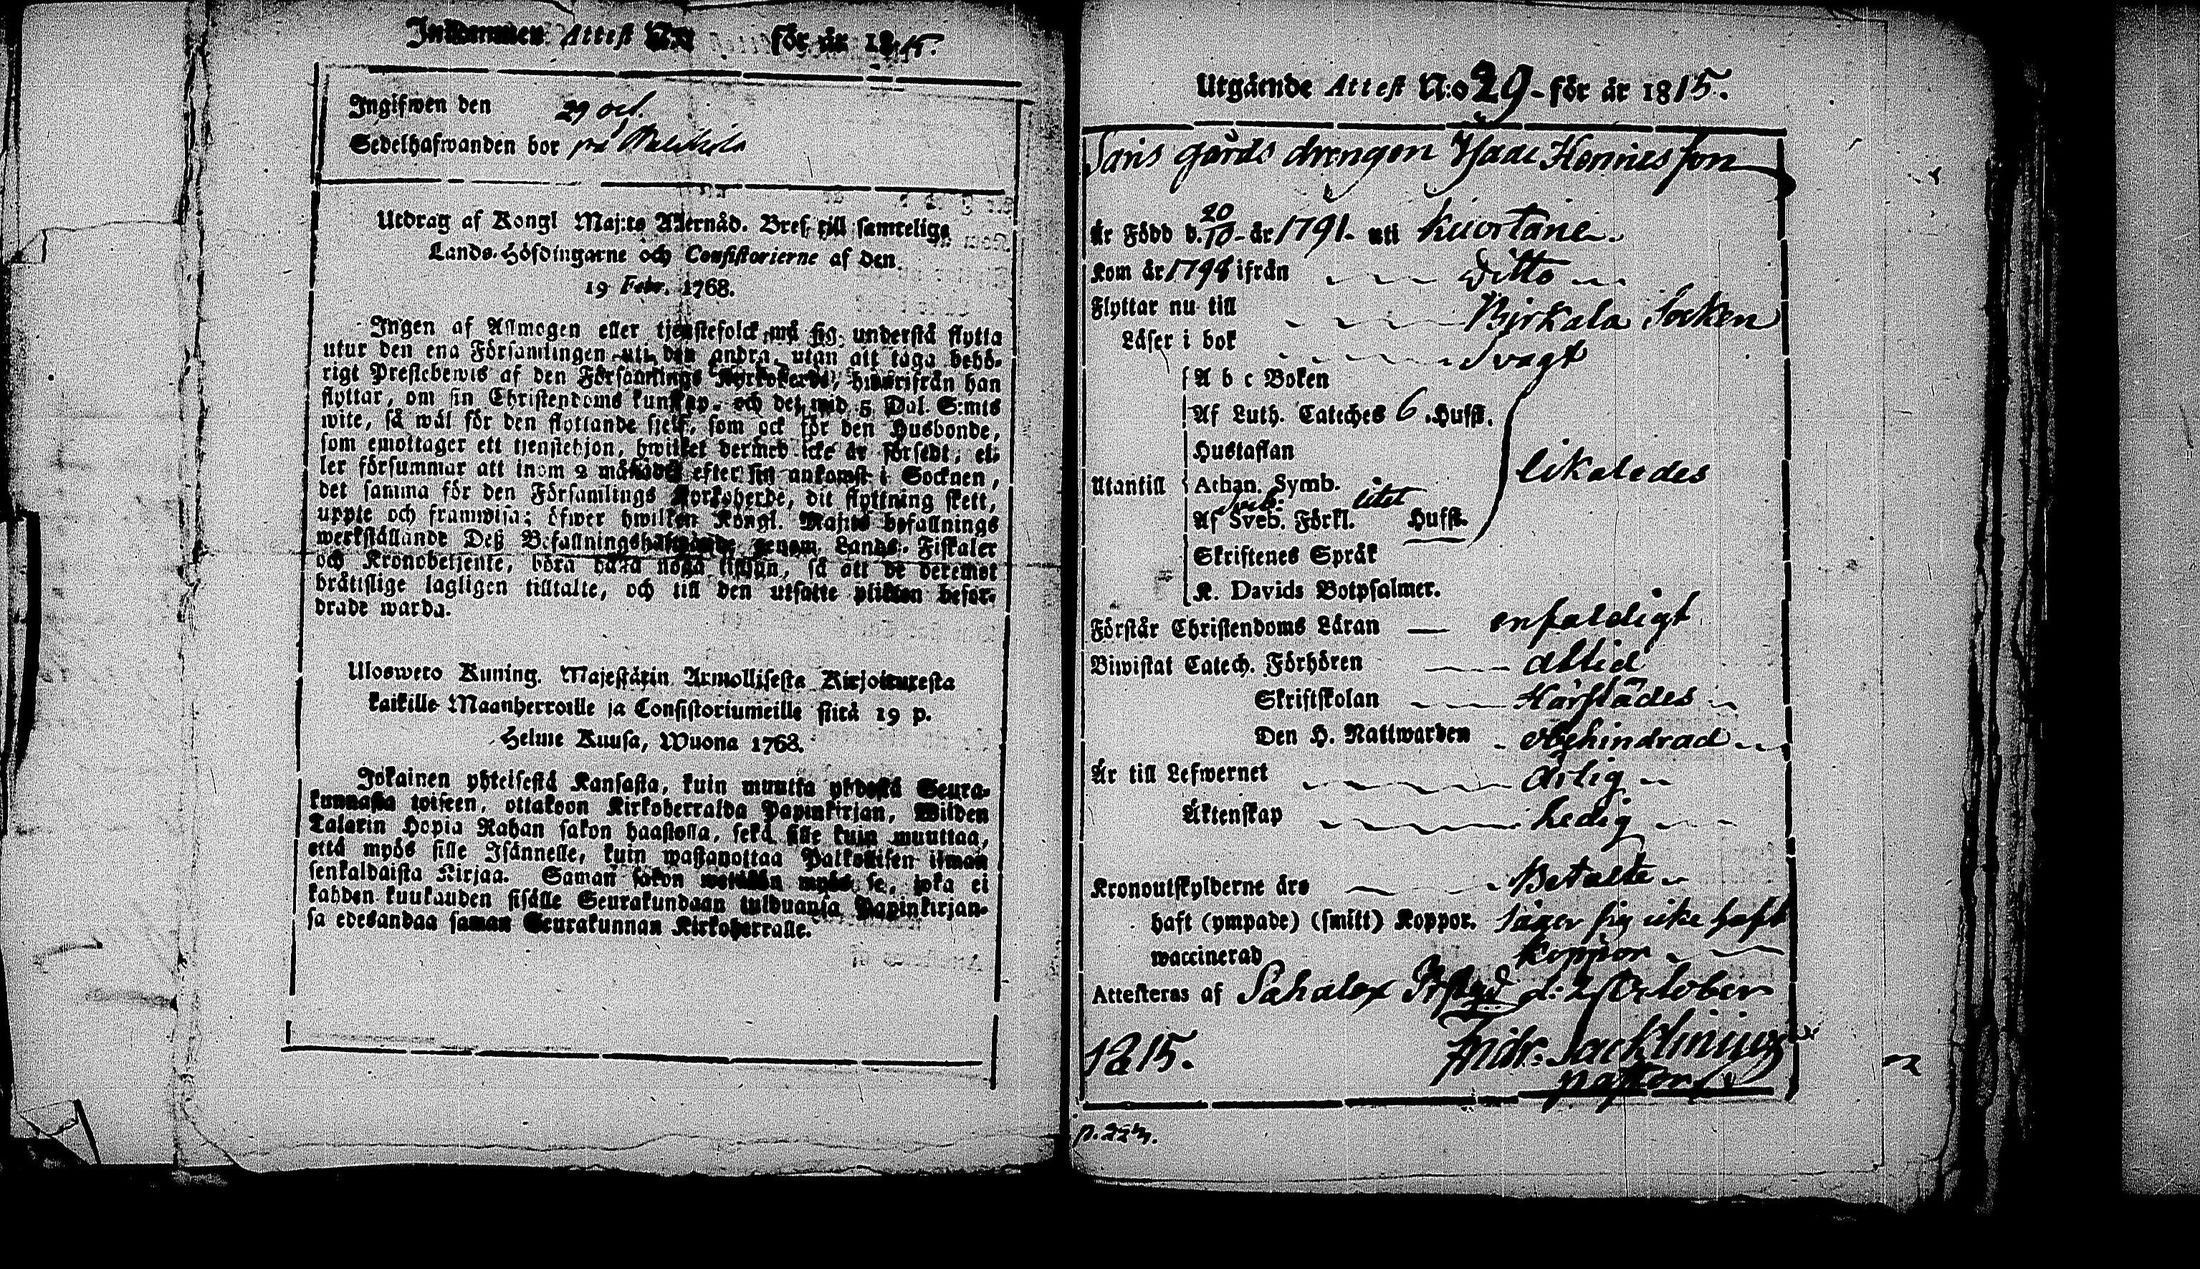 Inkommen Attest N:o för år 1815.
Ingifwen den 29 oct.
Sedelhafwanden bor på
Utdrag af Kongl Maj:ts Allernåd. Bref till samtelige
Lands-Höfdingarne och Consistorierne af den
19 Febr. 1768.
Ingen af Allmogen eller tjenstefolck må sig understå flytta
utur den ena Församlingen uti den andra, utan att taga behö-
rigt Prestebewis af den Församlings Kyrkoherde, hwarifrån han
flyttar, om sin Christendoms kunskap och det wid 5 Dal. S:mts
wite, så wäl för den flyttande sjelf, som ock för den Husbonde,
som emottager ett tjenstehjon, hwilket dermed icke är försedt, el-
ler försummar att inom 2 månader efter sin ankomst i Socknen,
det samma för den Församlings Kyrkoherde, dit flyttning skett,
uppte och framwisa; öfwer hwilken Kongl. Maj:ts befallnings
werkställande Deß Befallningshafwande genom Lands-Fiskaler
och Kronobetjente, böra hafwa noga tillsyn, så att de deremot
bråttslige lagligen tilltalte, och till den utsatte plikten befor-
drade warda.
Uloswето Kuning. Majestätin Armollisesta Kirjoituxesta
kaikille Maanherroille ja Consistoriumeille siitä 19 p.
Helme Kuusa, Wuona 1768.
Jokainen yhteisestä Kansasta, kuin muutta yhdestä Seura-
kunnasta toiseen, ottakoon Kirkoherralda Papinkirjan, Wilden
Talarin Hopia Rahan sakon haastolla, sekä sille kuin muuttaa,
että myös sille Isännelle, kuin wastanottaa Palkollisen ilman
senkaldaista Kirjaa. Saman sakon wetäkän myös se, joka ei
kahden kuukauden sisälle Seurakundaan tulduansa Papinkirjan-
sa edesandaa saman Seurakunnan Kirkoherralle.
Utgående Attest N:o 29 - för år 1815.
Saris gårds drengen Isaac Hennesson
Är Född d. 20/10 - år 1791 - uti Kuortane
Kom år 1798 ifrån ditto
Flyttar nu till Birkala Socken
Läser i bok Svagt
A b c Boken
Af Luth. Cateches 6. Hufst.
Hustaflan
Utantill
Athan. Symb. likaledes
Af Sveb. Förkl. litet Hufst.
Skriftenes Språk
K. Davids Botpsalmer.
Förstår Christendoms Läran enfaldigt
Biwistat Catech. Förhören alltid
Skriftskolan Härstädes
Den H. Nattwarden obehindrad
Är till Lefwernet ärlig
Äktenskap ledig
Kronoutskylderne äro Betalte
haft (ympade) (smitt) Koppor. säger sig icke haft
waccinerad koppor
Attesteras af Sahalax d: October
1815.